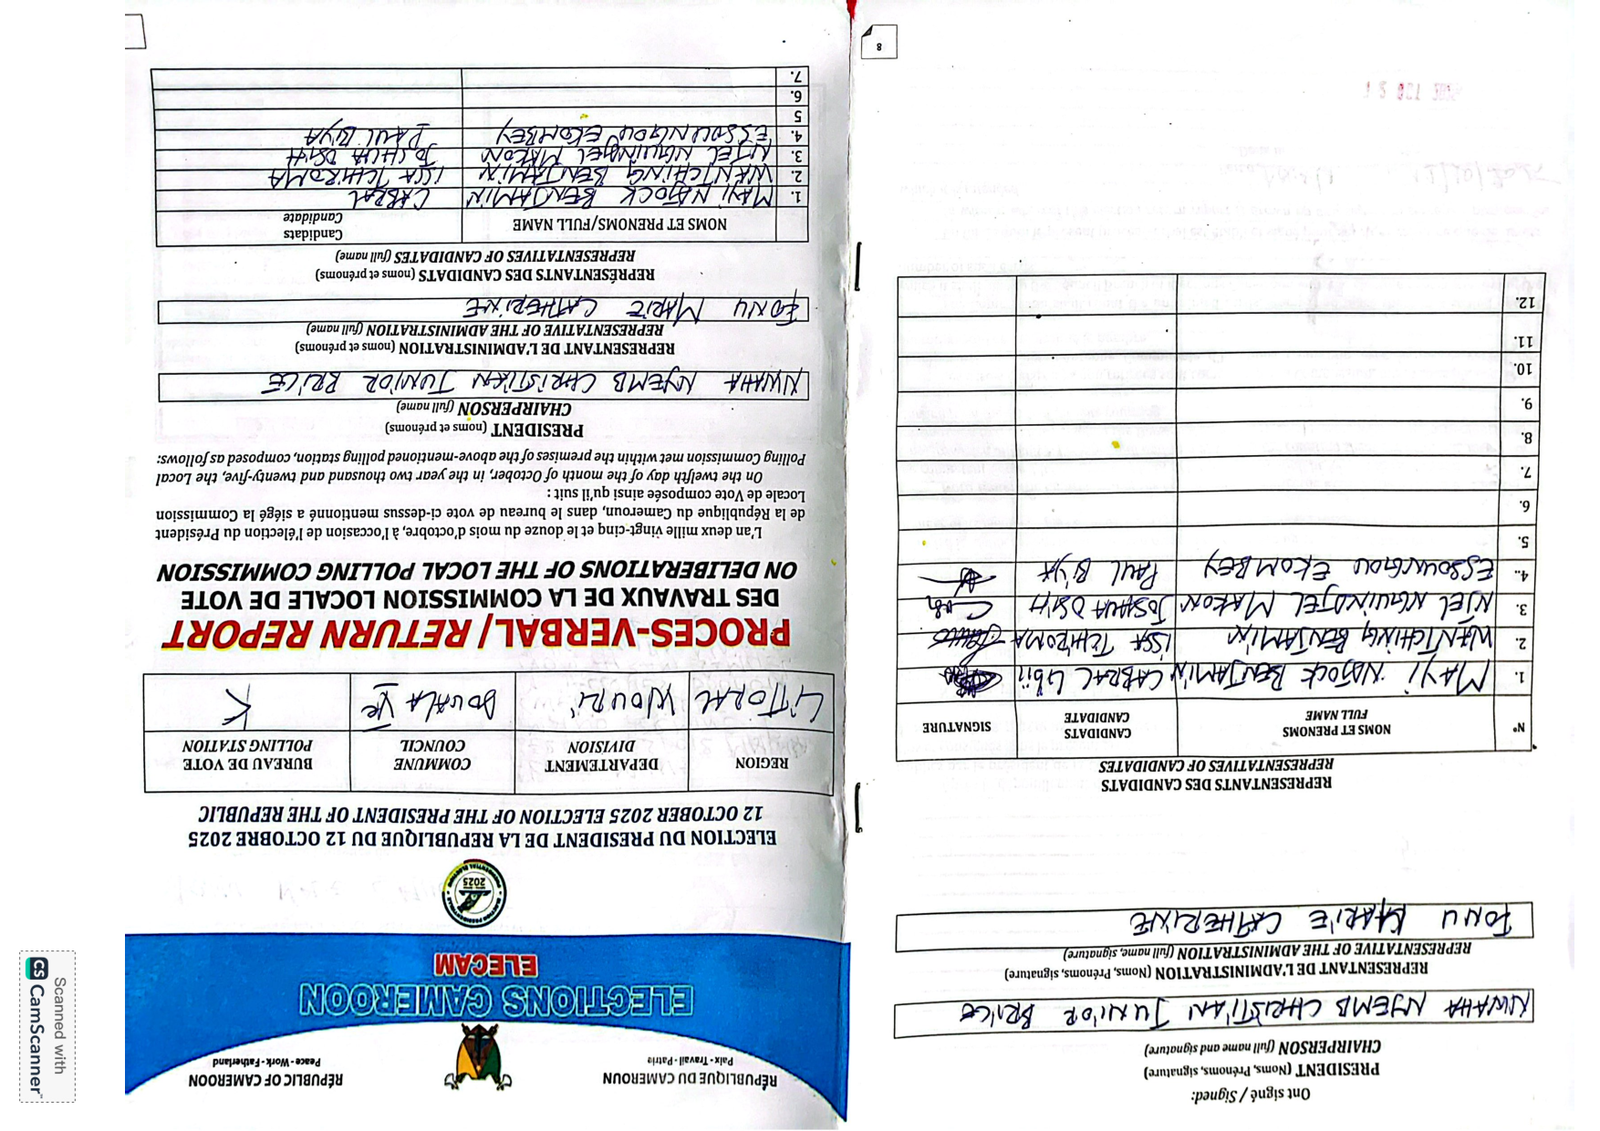 RÉPUBLIQUE DU CAMEROUN
Paix - Travail - Patrie
RÉPUBLIC OF CAMEROON
Peace - Work - Fatherland
ELECTIONS CAMEROON
ELECAM
ELECTION DU PRESIDENT DE LA REPUBLIQUE DU 12 OCTOBRE 2025
12 OCTOBER 2025 ELECTION OF THE PRESIDENT OF THE REPUBLIC
REGION DEPARTEMENT DIVISION COMMUNE COUNCIL BUREAU DE VOTE POLLING STATION
LITTORAL WOURI DOUALA Ve K
PROCES-VERBAL/ RETURN REPORT
DES TRAVAUX DE LA COMMISSION LOCALE DE VOTE
ON DELIBERATIONS OF THE LOCAL POLLING COMMISSION
L'an deux mille vingt-cinq et le douze du mois d'octobre, à l'occasion de l'élection du Président
de la République du Cameroun, dans le bureau de vote ci-dessus mentionné a siégé la Commission
Locale de Vote composée ainsi qu'il suit :
On the twelfth day of the month of October, in the year two thousand and twenty-five, the Local
Polling Commission met within the premises of the above-mentioned polling station, composed as follows:
PRESIDENT (noms et prénoms)
CHAIRPERSON (full name)
NWAHA NJEMB CHRISTIAN JUNIOR BRICE
REPRESENTANT DE L'ADMINISTRATION (noms et prénoms)
REPRESENTATIVE OF THE ADMINISTRATION (full name)
FONU MARIE CATHERINE
REPRÉSENTANTS DES CANDIDATS (noms et prénoms)
REPRESENTATIVES OF CANDIDATES (full name)
NOMS ET PRENOMS/FULL NAME Candidats Candidate
1. MAYI NDTOCK BENJAMIN CABRAL
2. WANTCHING BENJAMIN ISSA TCHIROMA
3. NJEL NGUINDJEL MAKON JOSHUA OSIH
4. ESSOUNGOU EKOMBEY PAUL BIYA
5
6.
7.
Ont signé / Signed:
PRESIDENT (Noms, Prénoms, signature)
CHAIRPERSON (full name and signature)
NWAHA NJEMB CHRISTIAN JUNIOR BRICE
REPRESENTANT DE L'ADMINISTRATION (Noms, Prénoms, signature)
REPRESENTATIVE OF THE ADMINISTRATION (full name, signature)
FONU MARIE CATHERINE
REPRESENTANTS DES CANDIDATS
REPRESENTATIVES OF CANDIDATES
N° NOMS ET PRENOMS FULL NAME CANDIDATS CANDIDATE SIGNATURE
1. MAYI NDTOCK BENJAMIN CABRAL Libii
2. WANTCHING BENJAMIN ISSA TCHIROMA
3. NJEL NGUINDJEL MAKON JOSHUA OSIH
4. ESSOUNGOU EKOMBEY PAUL BIYA
5.
6.
7.
8.
9.
10.
11.
12.
8
Scanned with
CS CamScanner